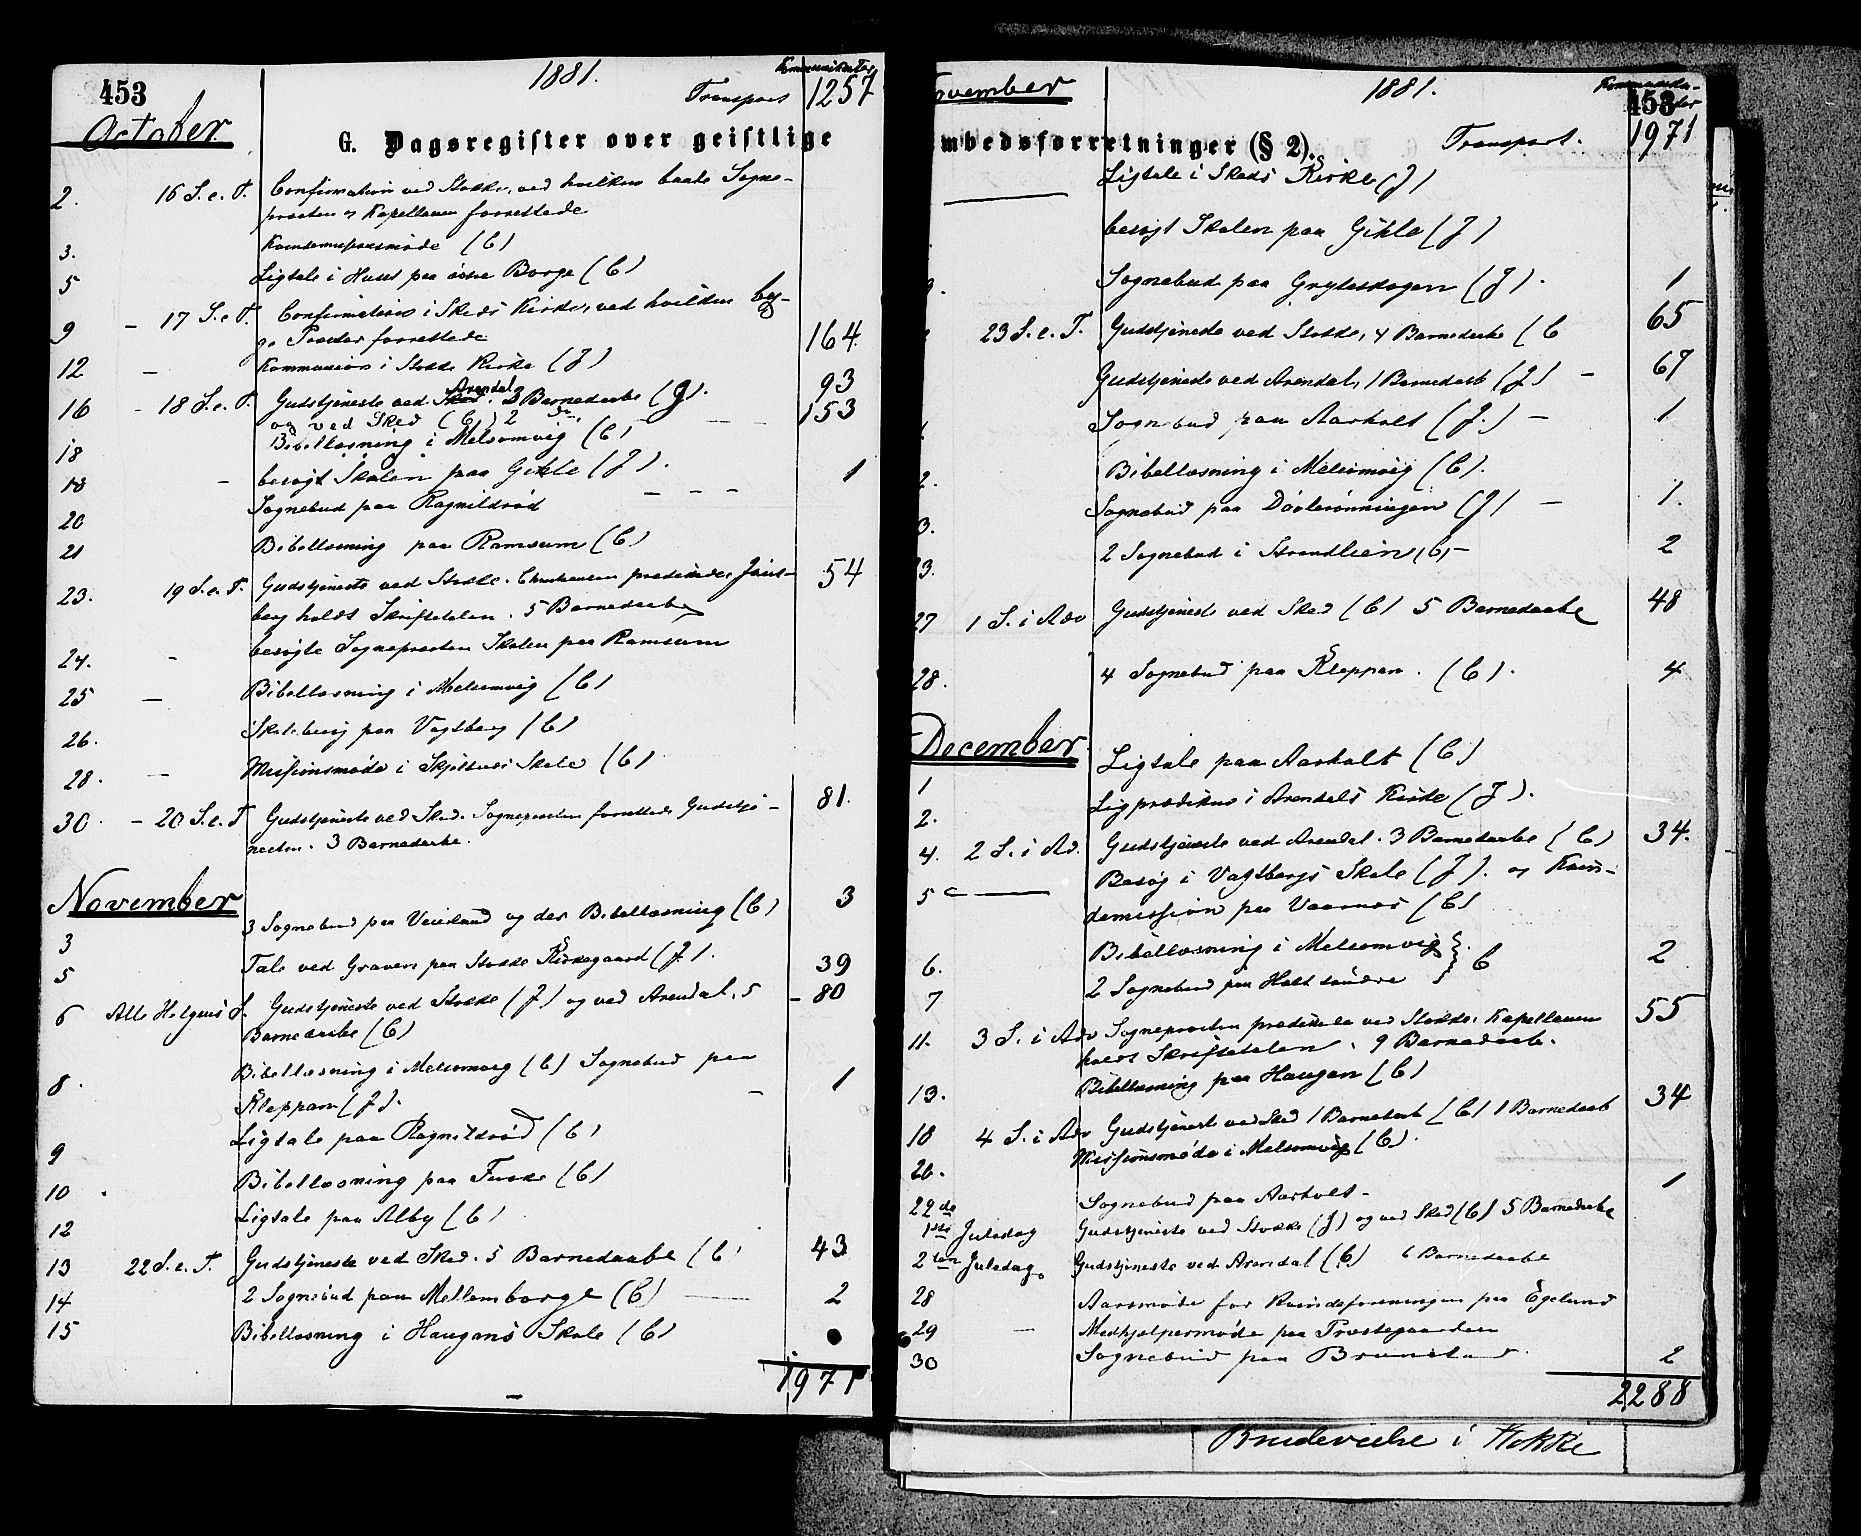 453
1881.
Kommunikanter
Transport 1257
October
G. Dagsregister over geistlige
2. 16 S. e. T. Confirmation ved Stokke, ved hvilken baade Sogne-
presten og Kapellanen forrettede
3. (C)
5 Ligtale i Huset paa østre Borge (C)
9 - 17 S. e. T. Confirmation i Skeds Kirke, ved hvilken beg-
ge Præster forrettede 164
12 - Kommunion i Stokke Kirke (J) 93
16 - 18 S. e. T. Gudstjeneste ved Arendal 2 Barnedaabe (J).
og ved Sked (C) 2 do. 153
18 Bibellæsning i Melsomvig (C)
18 - besøgt Skolen paa Gikle (J). 1
20 Sognebud paa Ragnildrød - - -
21 Bibellæsning paa Ramsum (C)
23. 19 S. e. T. Gudstjeneste ved Stokke. Christensen prædikede, 54
berg holdt Skriftetalen. 5 Barnedaabe
24. - besøgte Sognepresten Skolen paa Ramsum
25 - Bibellæsning i Melsomvig (C)
26. Skolebesøg paa Vagtberg (C)
28. - Missionsmøde i Skjeltnes Skole (C)
30. - 20 S. e. T Gudstjeneste ved Sked. Sognepresten forrettede Gudstje- 81.
nesten. 3 Barnedaabe.
November
3 3 Sognebud paa Veierland og der Bibellæsning (C) 3
5 Tale ved Graven paa Stokke Kirkegaard (J).
6 Alle Helgens S. Gudstjeneste ved Stokke (J) og ved Arendal, 5 39 - 80
Barnedaabe (C)
8. Bibellæsning i Melsomvig (C) Sognebud paa
Kleppan (J). - 1
9 Ligtale paa Ragnildrød (C)
10 . Bibellæsning paa Fuske (C)
12 Ligtale paa Alby (C)
13 22 S. e. T. Gudstjeneste ved Sked. 5 Barnedaabe (C) 43
14 2 Sognebud paa Mellemborge (C) 2
15 Bibellæsning i Haugans Skole (C)
1971
November
1881.
453
Transport. 1971
Embedsforretninger (§ 2).
Ligtale i Skeds Kirke (J)
besøgt Skolen paa Gikle (J)
Sognebud paa Gryteskogen (J). 1
23 S. e. T. Gudstjeneste ved Stokke, 4 Barnedaabe (C 65
Gudstjeneste ved Arendal, 1 Barnedaab (J) - 67
Sognebud paa Aarholt (J.) - 1
2. Bibellæsning i Melsomvig (C).
3. Sognebud paa (J) - 1.
3. 2 Sognebud i Strandlien (C) - 2
27 1 S. i Adv Gudstjeneste ved Sked (C) 5 Barnedaabe 48
28. 4 Sognebud paa Kleppan. (C). 4
December
1 Ligtale paa Aarholt (C)
2. Ligprædiken i Arendals Kirke (J).
4. 2 S. i Ad. Gudstjeneste ved Arendal. 3 Barnedaabe (C) 34.
5 Besøg i Vagtbergs Skole (J). og Kvin-
demission paa Vaarnes (C)
6. Bibellæsning i Melsomvig } C 2
7 2 Sognebud paa Holt søndre
11. 3 S. i Adv Sognepresten prædikede ved Stokke, Kapellanen 55
holdt Skriftetalen. 9 Barnedaab.
13. Bibellæsning paa Haugan (C)
18 4 S. i Adv Gudstjeneste ved Sked 1 Barnedaab (C) 1 Barnedaab 34
20. Missionsmøde i Melsomvig (C).
22de Sognebud paa Aarholt - 1
1ste Juledag Gudstjeneste ved Stokke (J) og ved Sked (C) 5 Barnedaabe
2den Juledag. Gudstjeneste ved Arendal (C) 6 Barnedaabe
28 Aarsmøde for Kvindeforeningen paa Egelund
29 - Medhjælpermøde paa Præstegaarden
30 Sognebud paa Brunstad. 2
2288
Brudevielse i Stokke